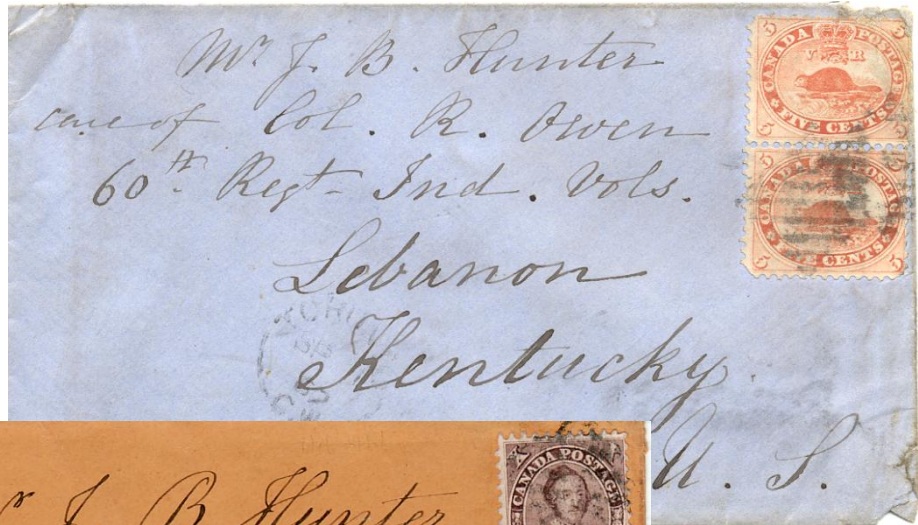 Mr J. B. Hunter
care of Col. R. Owen
60th Regt - Ind. Vols.
Lebanon
Kentucky
U. S.
5 CANADA POSTAGE 5
V R
5 FIVE CENTS 5
5 CANADA POSTAGE 5
5 FIVE CENTS 5
r J. B. Hunter
CANADA POSTAGE